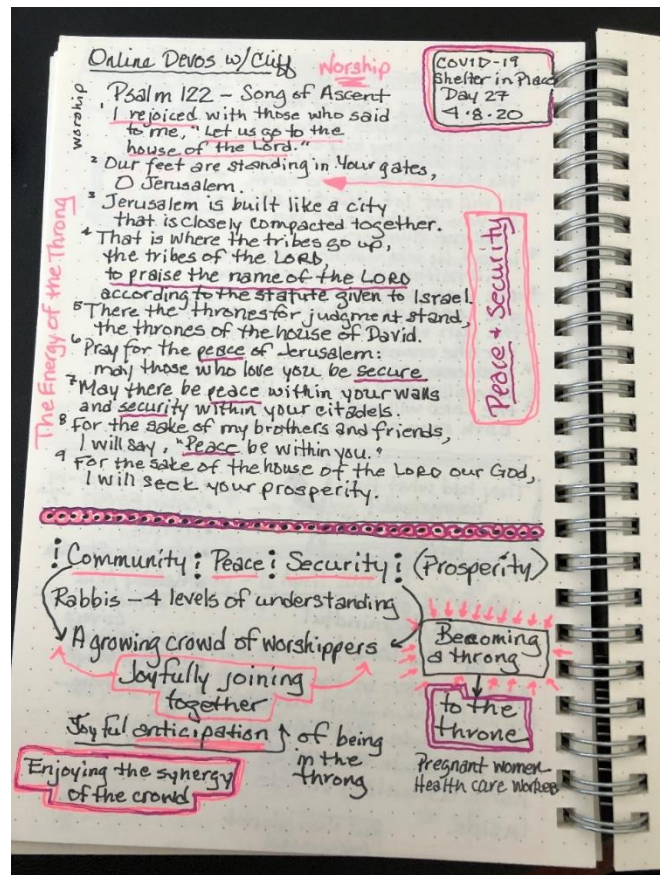 Online Devos w/Cliff
Worship
COVID-19
Shelter in Place
Day 27
4.8.20
worship
Psalm 122 - Song of Ascent
1 I rejoiced with those who said
to me, "Let us go to the
house of the Lord."
2 Our feet are standing in Your gates,
O Jerusalem.
3 Jerusalem is built like a city
that is closely compacted together.
4 That is where the tribes go up,
the tribes of the LORD,
to praise the name of the LORD
according to the statute given to Israel.
5 There the thrones for judgment stand,
the thrones of the house of David.
6 Pray for the peace of Jerusalem:
may those who love you be secure
7 May there be peace within your walls
and security within your citadels.
8 For the sake of my brothers and friends,
I will say, "Peace be within you."
9 For the sake of the house of the LORD our God,
I will seek your prosperity.
The Energy of the Throng
Peace + Security
: Community : Peace : Security : (Prosperity)
Rabbis - 4 levels of understanding
A growing crowd of worshippers
Joyfully joining
together
Becoming
a throng
to the
throne
Joyful anticipation of being
in the
throng
Enjoying the synergy
of the crowd
Pregnant women
Health care workers